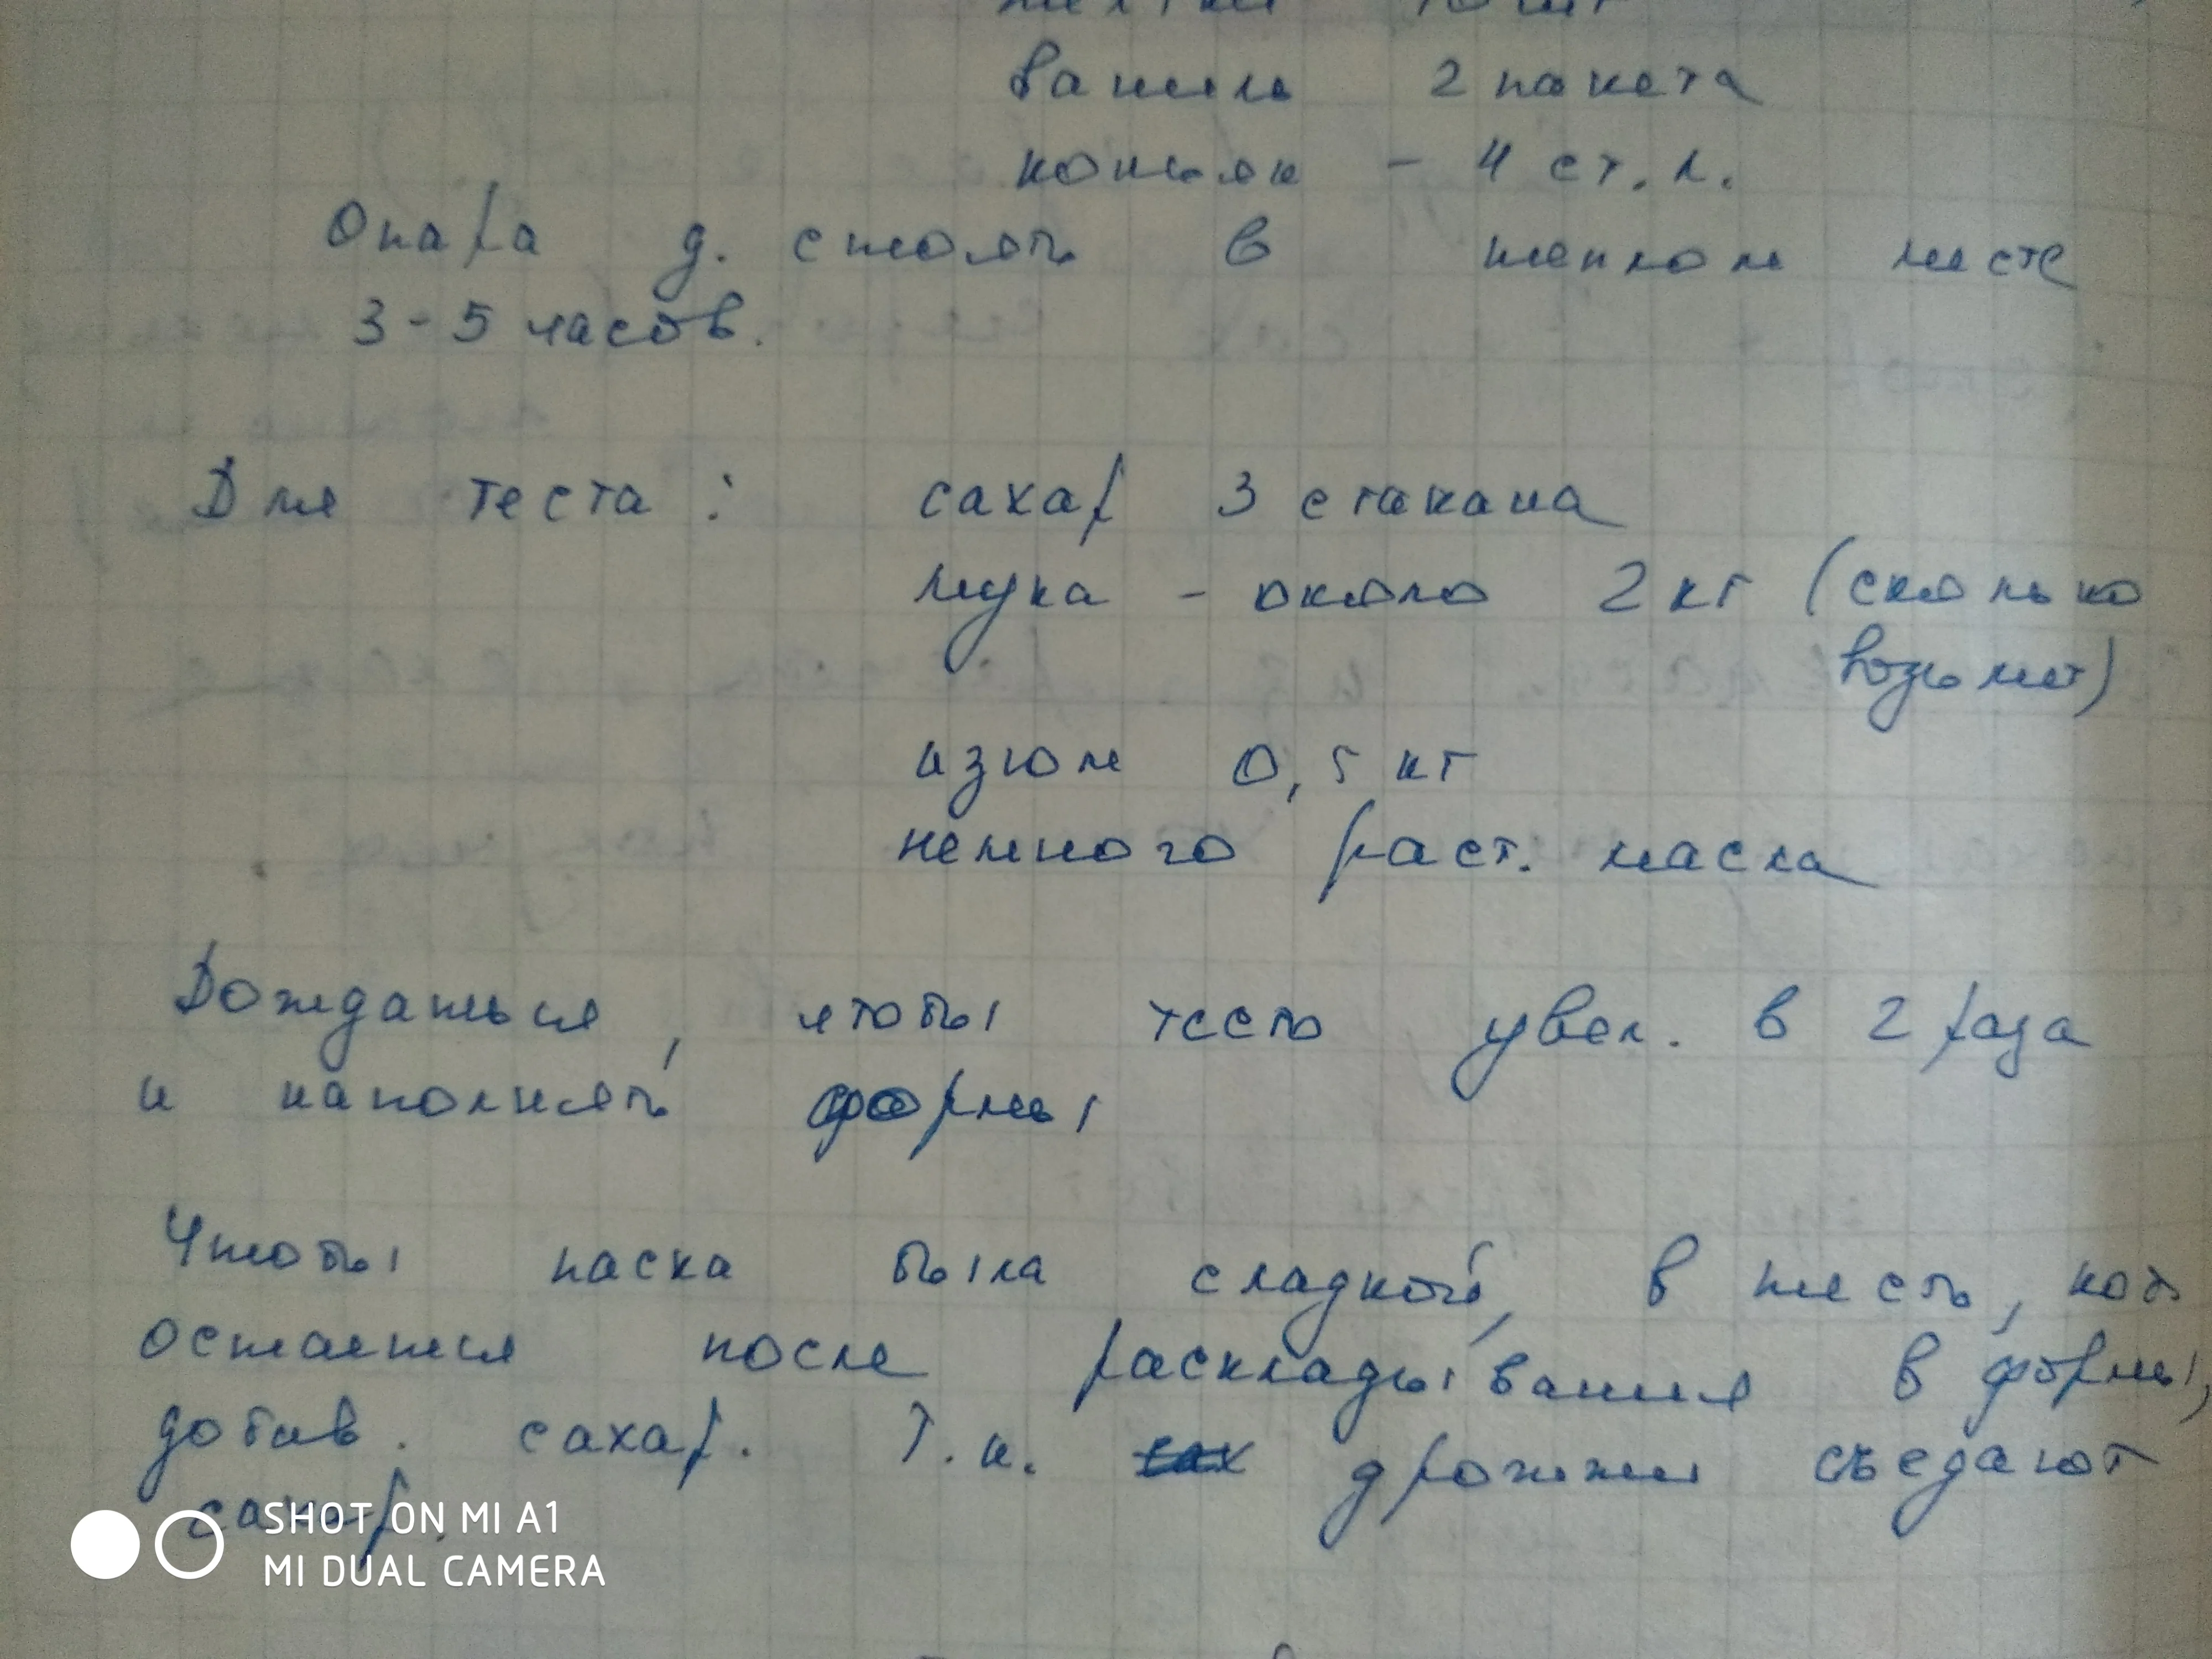 желтки 10 шт
ваниль 2 пакета
коньяк - 4 ст. л.
Опара д. стоять в теплом месте
3-5 часов.
Для теста: сахар 3 стакана
мука - около 2 кг (сколько
возьмет)
изюм 0,5 кг
немного раст. масла
Дождаться, чтобы тесто увел. в 2 раза
и наполнять формы
Чтобы паска была сладкой, в тесто, кот.
останется после раскладывания в формы,
добав. сахар. Т.к. сах дрожжи съедают
сахар.
SHOT ON MI A1
MI DUAL CAMERA